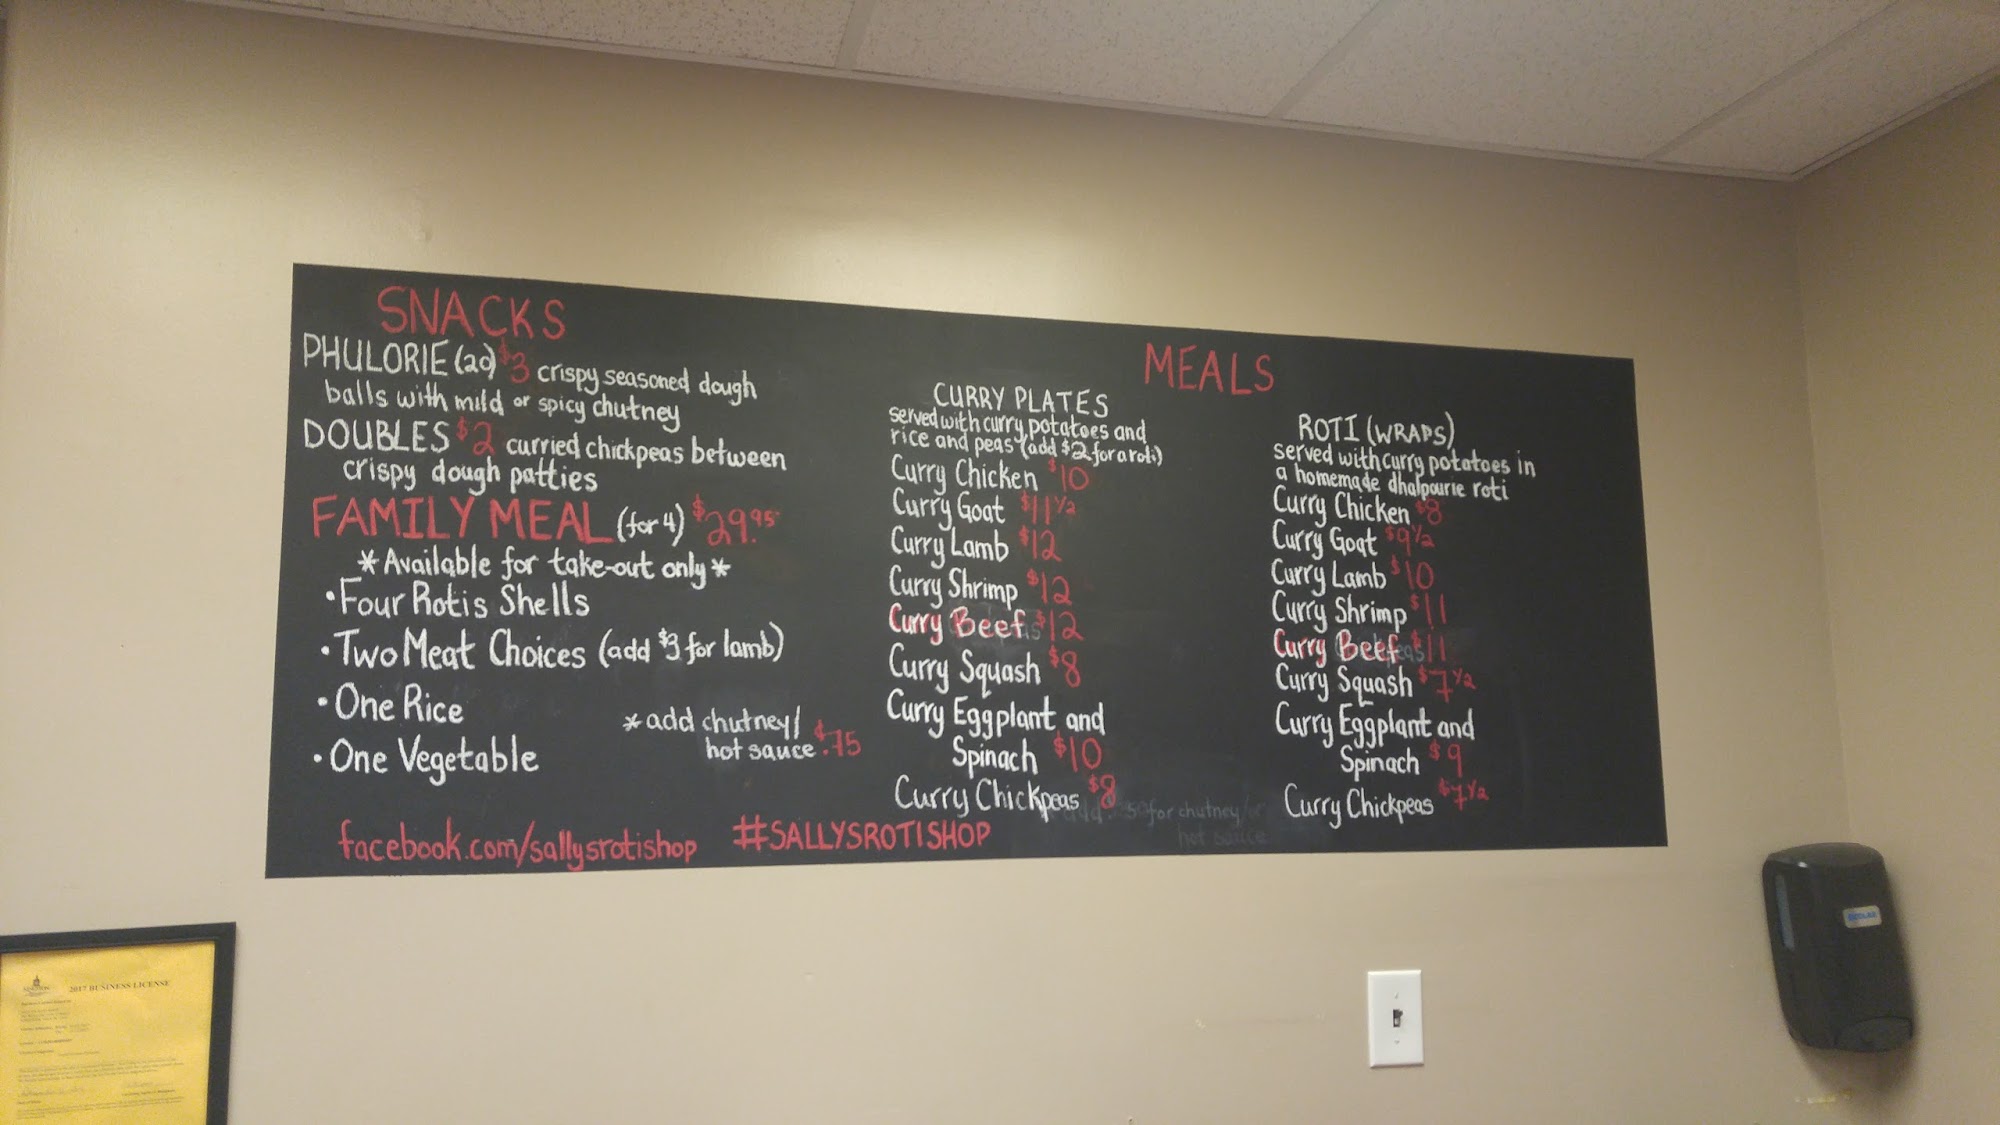 SNACKS
PHULORIE (20) $3 crispy seasoned dough
balls with mild or spicy chutney
DOUBLES $2 curried chickpeas between
crispy dough patties
FAMILY MEAL (for 4) $29.95
*Available for take-out only*
• Four Rotis Shells
• Two Meat Choices (add $3 for lamb)
• One Rice
• One Vegetable
*add chutney/
hot sauce $.75
facebook.com/sallysrotishop
#SALLYSROTISHOP
MEALS
CURRY PLATES
served with curry potatoes and
rice and peas (add $2 for a roti)
Curry Chicken $10
Curry Goat $11 1/2
Curry Lamb $12
Curry Shrimp $12
Curry Beef $12
Curry Squash $8
Curry Eggplant and
Spinach $10
Curry Chickpeas $8
for chutney/or
hot sauce
ROTI (WRAPS)
served with curry potatoes in
a homemade dhalpourie roti
Curry Chicken $8
Curry Goat $9 1/2
Curry Lamb $10
Curry Shrimp $11
Curry Beef $11
Curry Squash $7 1/2
Curry Eggplant and
Spinach $9
Curry Chickpeas $7 1/2
2017 BUSINESS LICENSE
ECOLAB